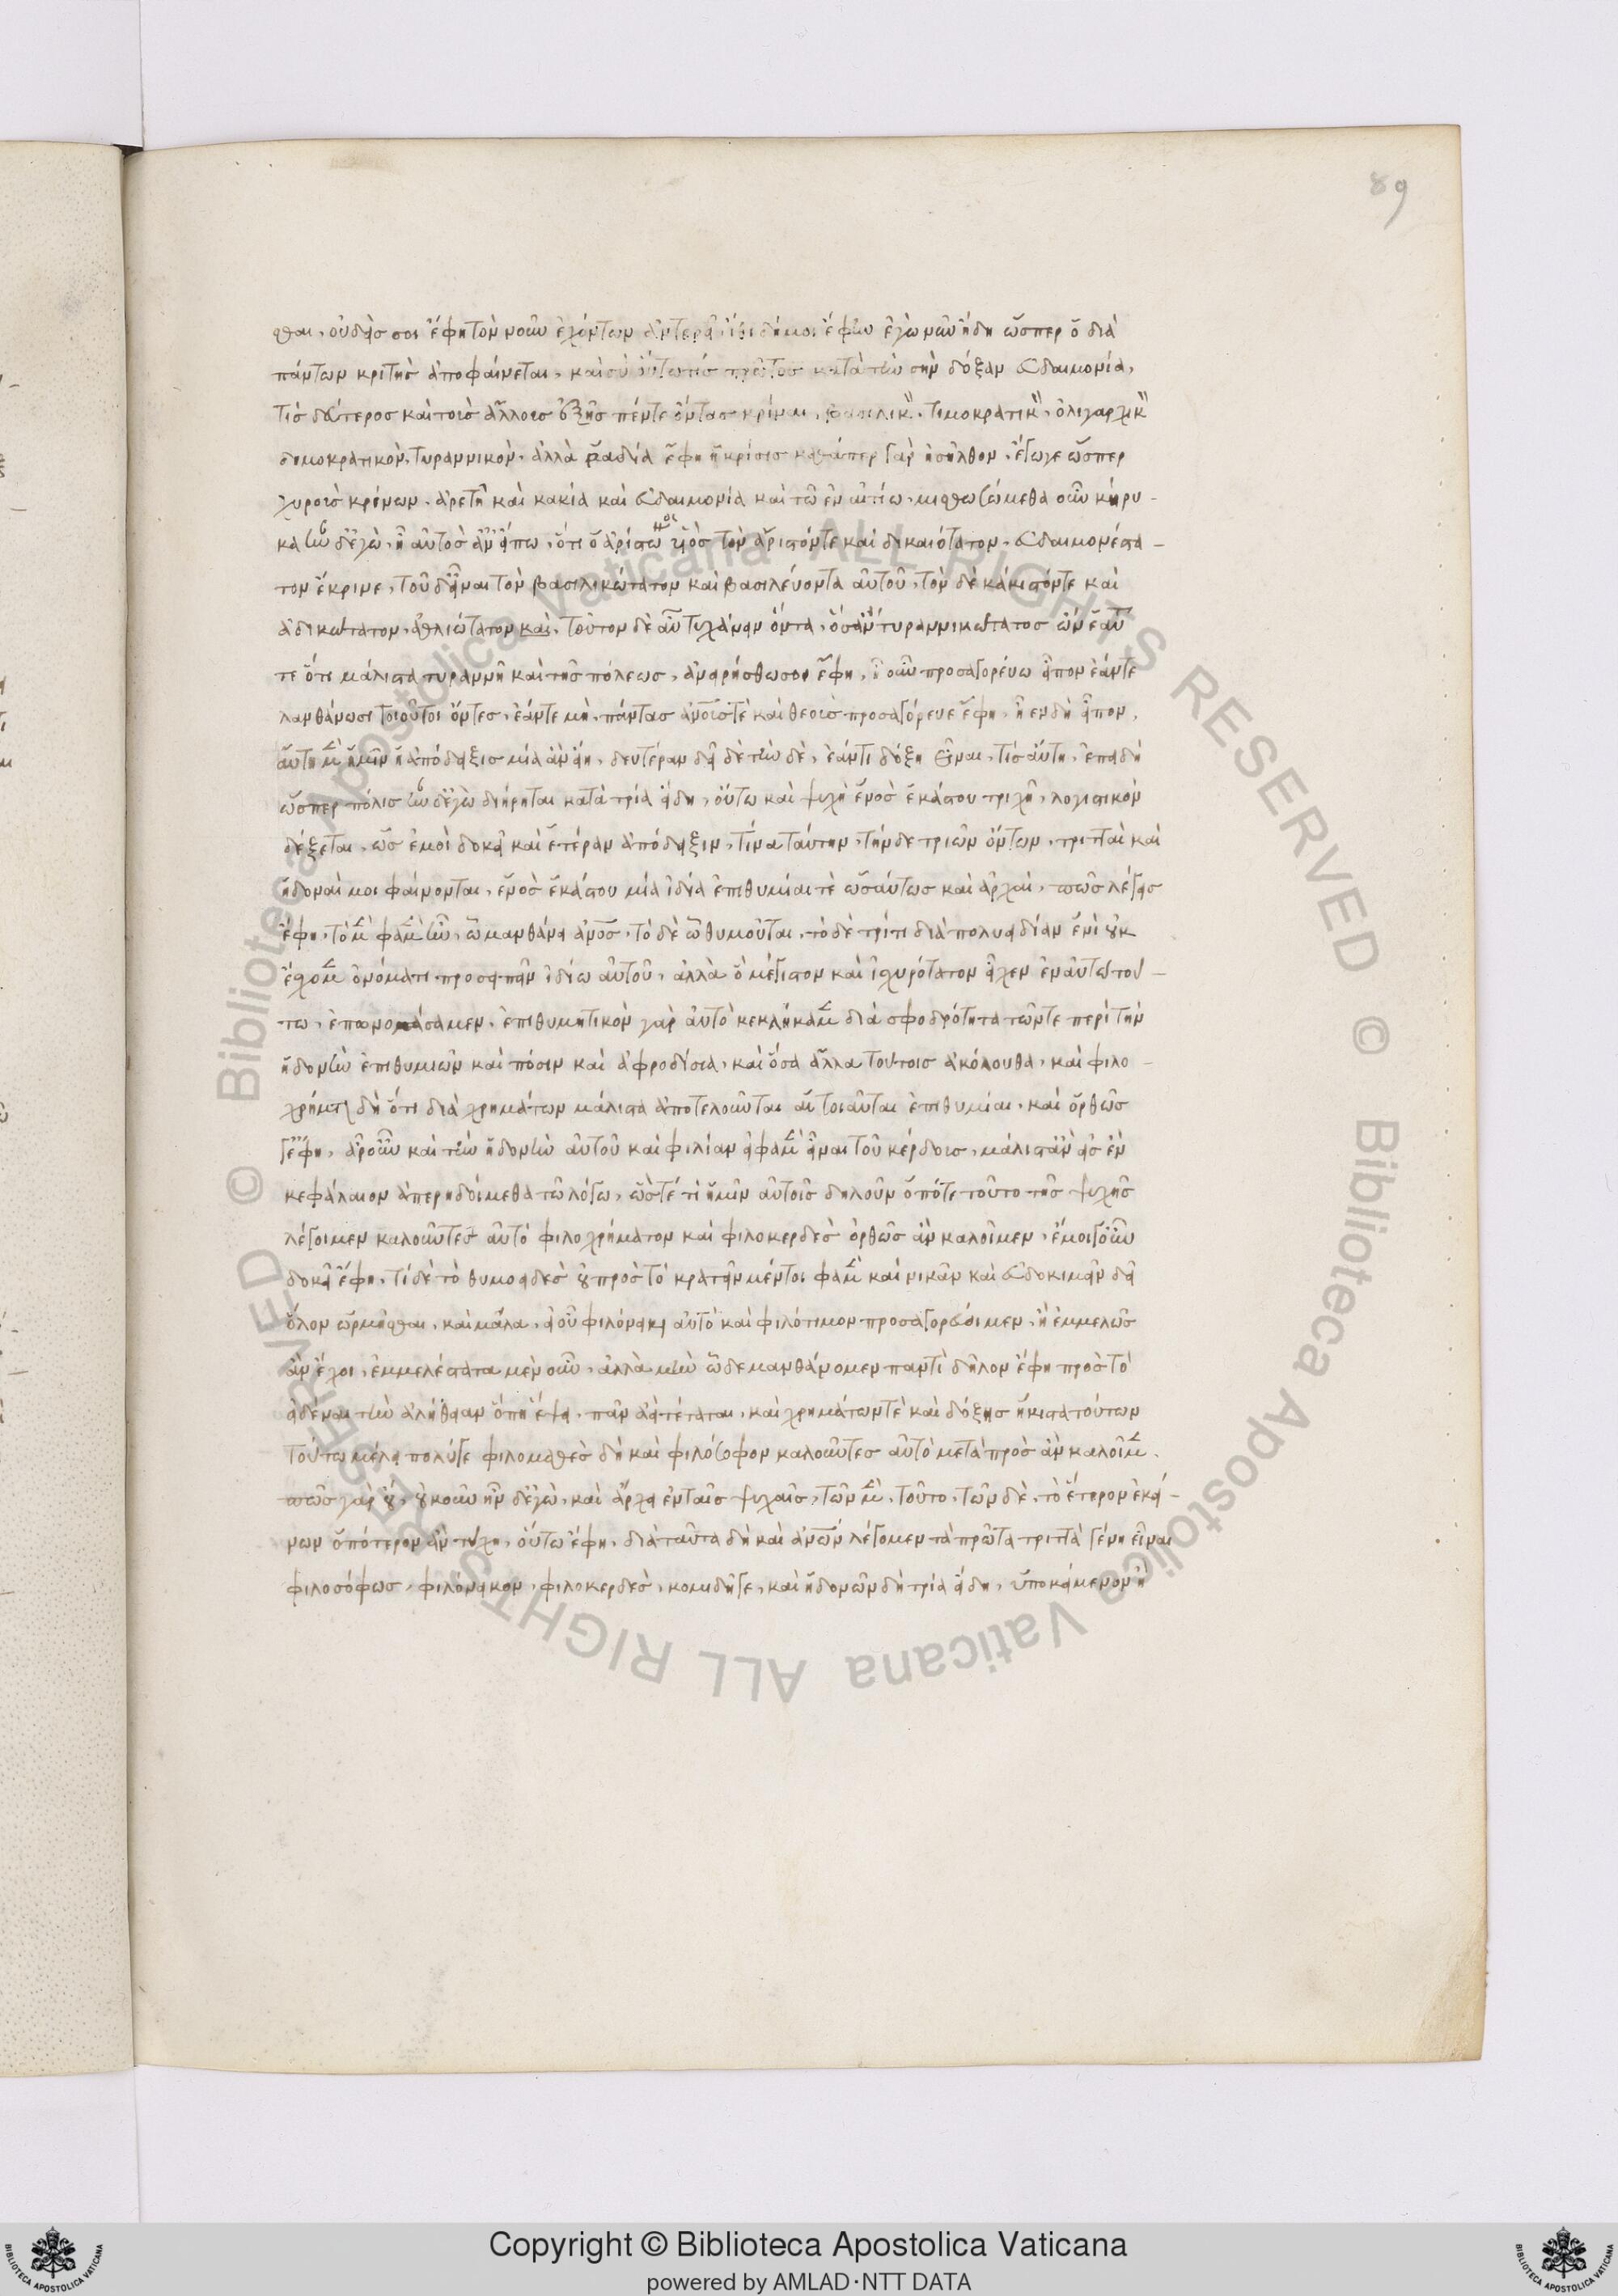 89
σθαι, οὐδείς σοι ἔφη τὸν νοῦν ἐχόντων ἀντερεῖ, ἴθι δή μοι ἔφην ἐγὼ νῦν ἤδη ὥσπερ ὁ διὰ
πάντων κριτὴς ἀποφαίνεται, καὶ σὺ οὕτω τίς πρῶτος κατὰ τὴν σὴν δόξαν εὐδαιμονία,
τίς δεύτερος καὶ τοὺς ἄλλους ἑξῆς πέντε ὄντας κρῖναι, βασιλικ, τιμοκρατικ, ὀλιγαρχικ
δημοκρατικὸν, τυραννικὸν, ἀλλὰ ῥαδία ἔφη ἡ κρίσις καθάπερ γὰρ εἰσῆλθον, ἔγωγε ὥσπερ
χοροὺς κρίνων, ἀρετῆ καὶ κακία καὶ εὐδαιμονία καὶ τῶ ἐναντίω, μισθωσώμεθα οὖν κήρυ-
κα ἦν δ' ἐγὼ, ἢ αὐτὸς ἀνείπω, ὅτι ὁ ἀρίστωνος υἱὸς τὸν ἄριστόν τε καὶ δικαιότατον, εὐδαιμονέστα-
τον ἔκρινε, τοῦ δ' εἶναι τὸν βασιλικώτατον καὶ βασιλεύοντα αὑτοῦ, τὸν δὲ κάκιστόν τε καὶ
ἀδικώτατον, ἀθλιώτατον καὶ, τοῦτον δὲ αὖ τυγχάνειν ὄντα, ὃς ἂν τυραννικώτατος ὢν ἑαυτοῦ
τε ὅτι μάλιστα τυραννῆ καὶ τῆς πόλεως, ἀνειρήσθω σοι ἔφη, ἦ οὖν προσαγορεύω εἶπον ἐάν τε
λανθάνωσι τοιοῦτοι ὄντες, ἐάν τε μὴ, πάντας ἀνους τὲ καὶ θεοὺς προσαγόρευε ἔφη, εἶεν δὴ εἶπον,
αὕτη μὲν ἡμῖν ἡ ἀπόδειξις μία ἂν εἴη, δευτέραν δεῖ δὲ τήνδε, ἐάν τι δόξη εἶναι, τίς αὕτη, ἐπειδὴ
ὥσπερ πόλις ἦν δ' ἐγὼ διήρηται κατὰ τρία εἴδη, οὕτω καὶ ψυχὴ ἑνὸς ἑκάστου τριχῆ, λογιστικὸν
δέξεται, ὡς ἐμοὶ δοκεῖ καὶ ἑτέραν ἀπόδειξιν, τίνα ταύτην, τήνδε τριῶν ὄντων, τριτταὶ καὶ
ἡδοναί μοι φαίνονται, ἑνὸς ἑκάστου μία ἰδία ἐπιθυμίαι τὲ ὡσαύτως καὶ ἀρχαὶ, πῶς λέγεις
ἔφη, τὸ μὲν φαμὲν ἦν, ὧ μανθάνει ἀνος, τὸ δὲ ὧ θυμοῦται, τὸ δὲ τρίτι διὰ πολυειδίαν ἑνὶ οὐκ
ἔσχομεν ὀνόματι προσειπεῖν ἰδίω αὐτοῦ, ἀλλὰ ὃ μέγιστον καὶ ἰσχυρότατον εἶχεν ἐν αὐτῶ τού-
τω, ἐπωνομάσαμεν, ἐπιθυμητικὸν γὰρ αὐτὸ κεκλήκαμεν διὰ σφοδρότητα τῶν τε περὶ τὴν
ἡδονὴν ἐπιθυμιῶν καὶ πόσιν καὶ ἀφροδίσια, καὶ ὅσα ἄλλα τούτοις ἀκόλουθα, καὶ φιλο-
χρήματον δὴ ὅτι διὰ χρημάτων μάλιστα ἀποτελοῦνται αἱ τοιαῦται ἐπιθυμίαι, καὶ ὀρθῶς
γ' ἔφη, ἆρ' οὖν καὶ τὴν ἡδονὴν αὐτοῦ καὶ φιλίαν εἰ φαμὲν εἶναι τοῦ κέρδους, μάλιστ' ἂν εἰς ἓν
κεφάλαιον ἀπερηδοίμεθα τῶ λόγω, ὥστέ τι ἡμῖν αὐτοῖς δηλοῦν ὁπότε τοῦτο τῆς ψυχῆς
λέγοιμεν καλοῦντες αὐτὸ φιλοχρήματον καὶ φιλοκερδὲς ὀρθῶς ἂν καλοῖμεν, ἐμοὶ γοῦν
δοκεῖ ἔφη, τί δὲ τὸ θυμοειδὲς οὐ πρὸς τὸ κρατεῖν μέντοι φαμὲν καὶ νικᾶν καὶ εὐδοκιμεῖν δεῖ
ὅλον ὡρμῆσθαι, καὶ μάλα, εἰ οὖν φιλόνεικον αὐτὸ καὶ φιλότιμον προσαγορεύοιμεν, ἦ ἐμμελῶς
ἂν ἔχοι, ἐμμελέστατα μὲν οὖν, ἀλλὰ μὴν ὧδε μανθάνομεν παντὶ δῆλον ἔφη πρὸς τὸ
εἰδέναι τὴν ἀλήθειαν ὅπη ἔχει, πᾶν ἀεὶ τέταται, καὶ χρημάτων τὲ καὶ δόξης ἥκιστα τούτων
τούτω μέλει πολύ γε φιλομαθὲς δὴ καὶ φιλόσοφον καλοῦντες αὐτὸ μετὰ πρὸς ἂν καλοῖμεν,
πῶς γὰρ οὔ, οὐκοῦν ἦν δ' ἐγὼ, καὶ ἄρχει ἐν ταῖς ψυχαῖς, τῶν μὲν, τοῦτο, τῶν δὲ, τὸ ἕτερον ἐκεί-
νων ὁπότερον ἂν τύχη, οὕτω ἔφη, διὰ ταῦτα δὴ καὶ ἀνων λέγομεν τὰ πρῶτα τριττὰ γένη εἶναι
φιλοσόφως, φιλόνεικον, φιλοκερδὲς, κομιδῆ γε, καὶ ἡδονῶν δὴ τρία εἴδη, ὑποκείμενον ἓν
Copyright © Biblioteca Apostolica Vaticana
powered by AMLAD·NTT DATA